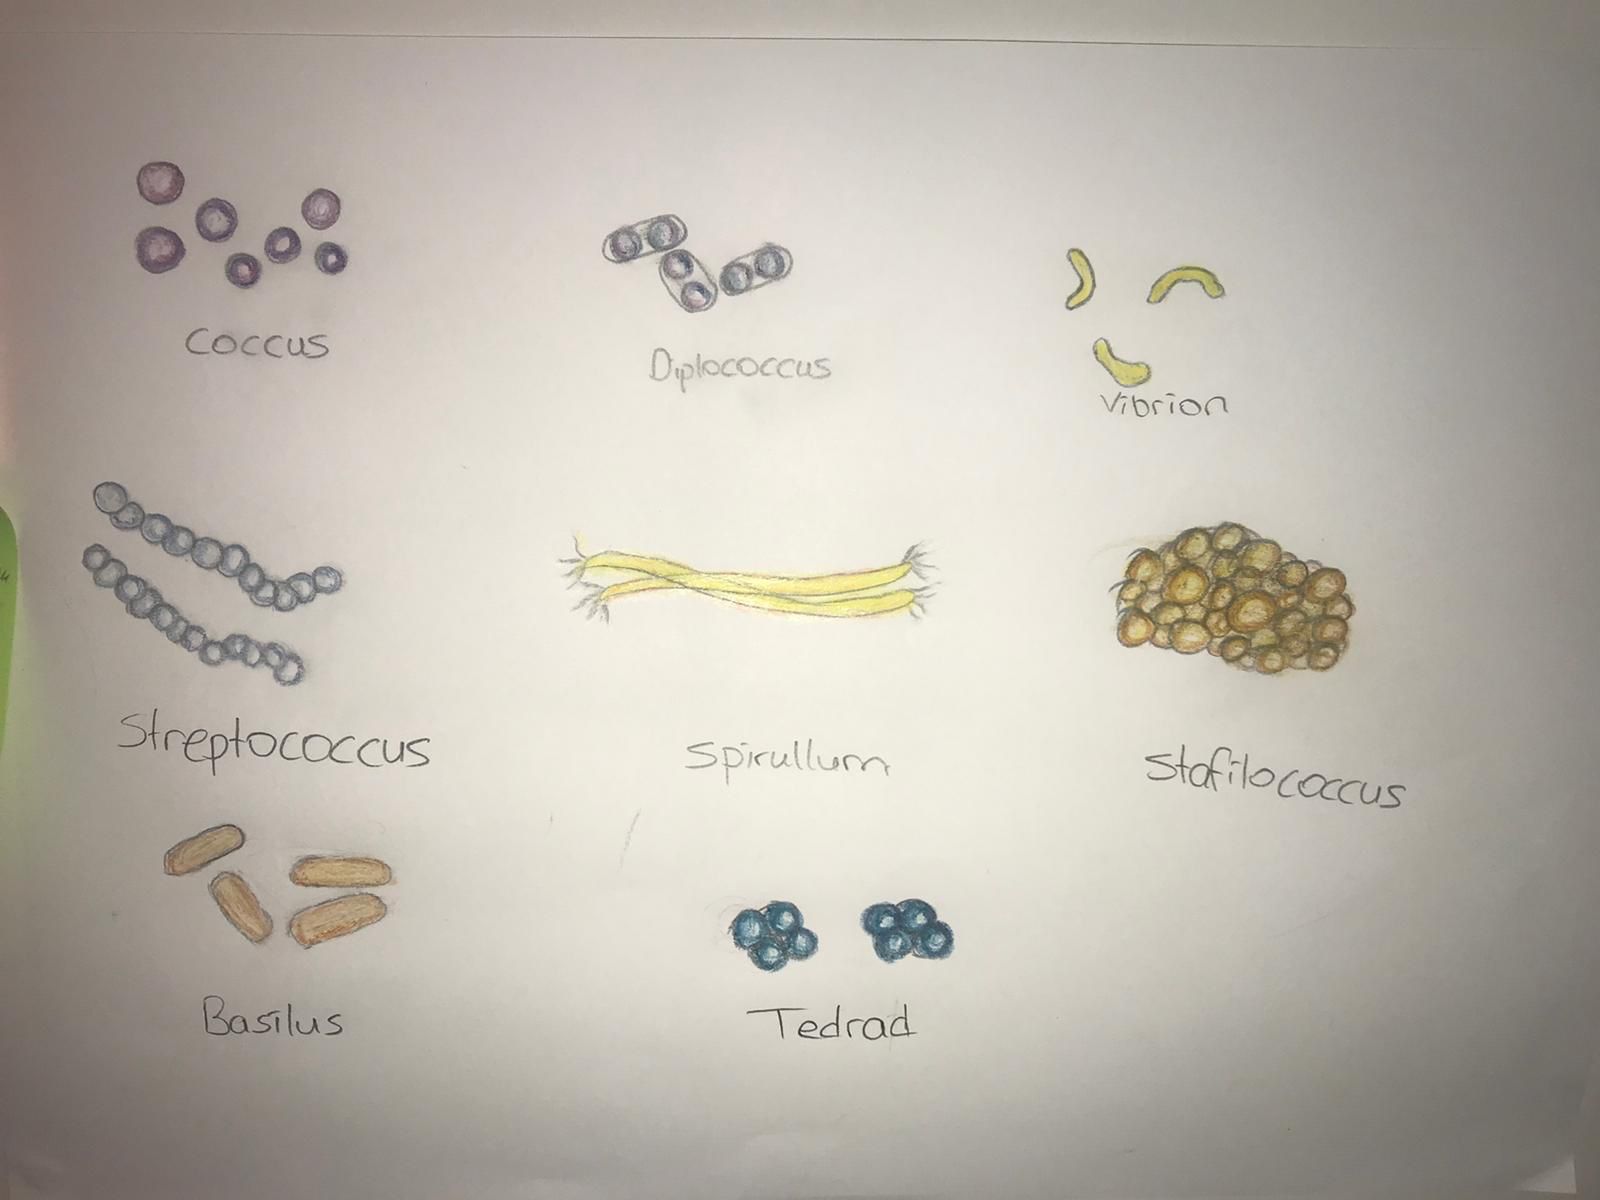 Coccus
Diplococcus
Vibrion
Streptococcus
Spirullum
Stafilococcus
Basilus
Tedrad